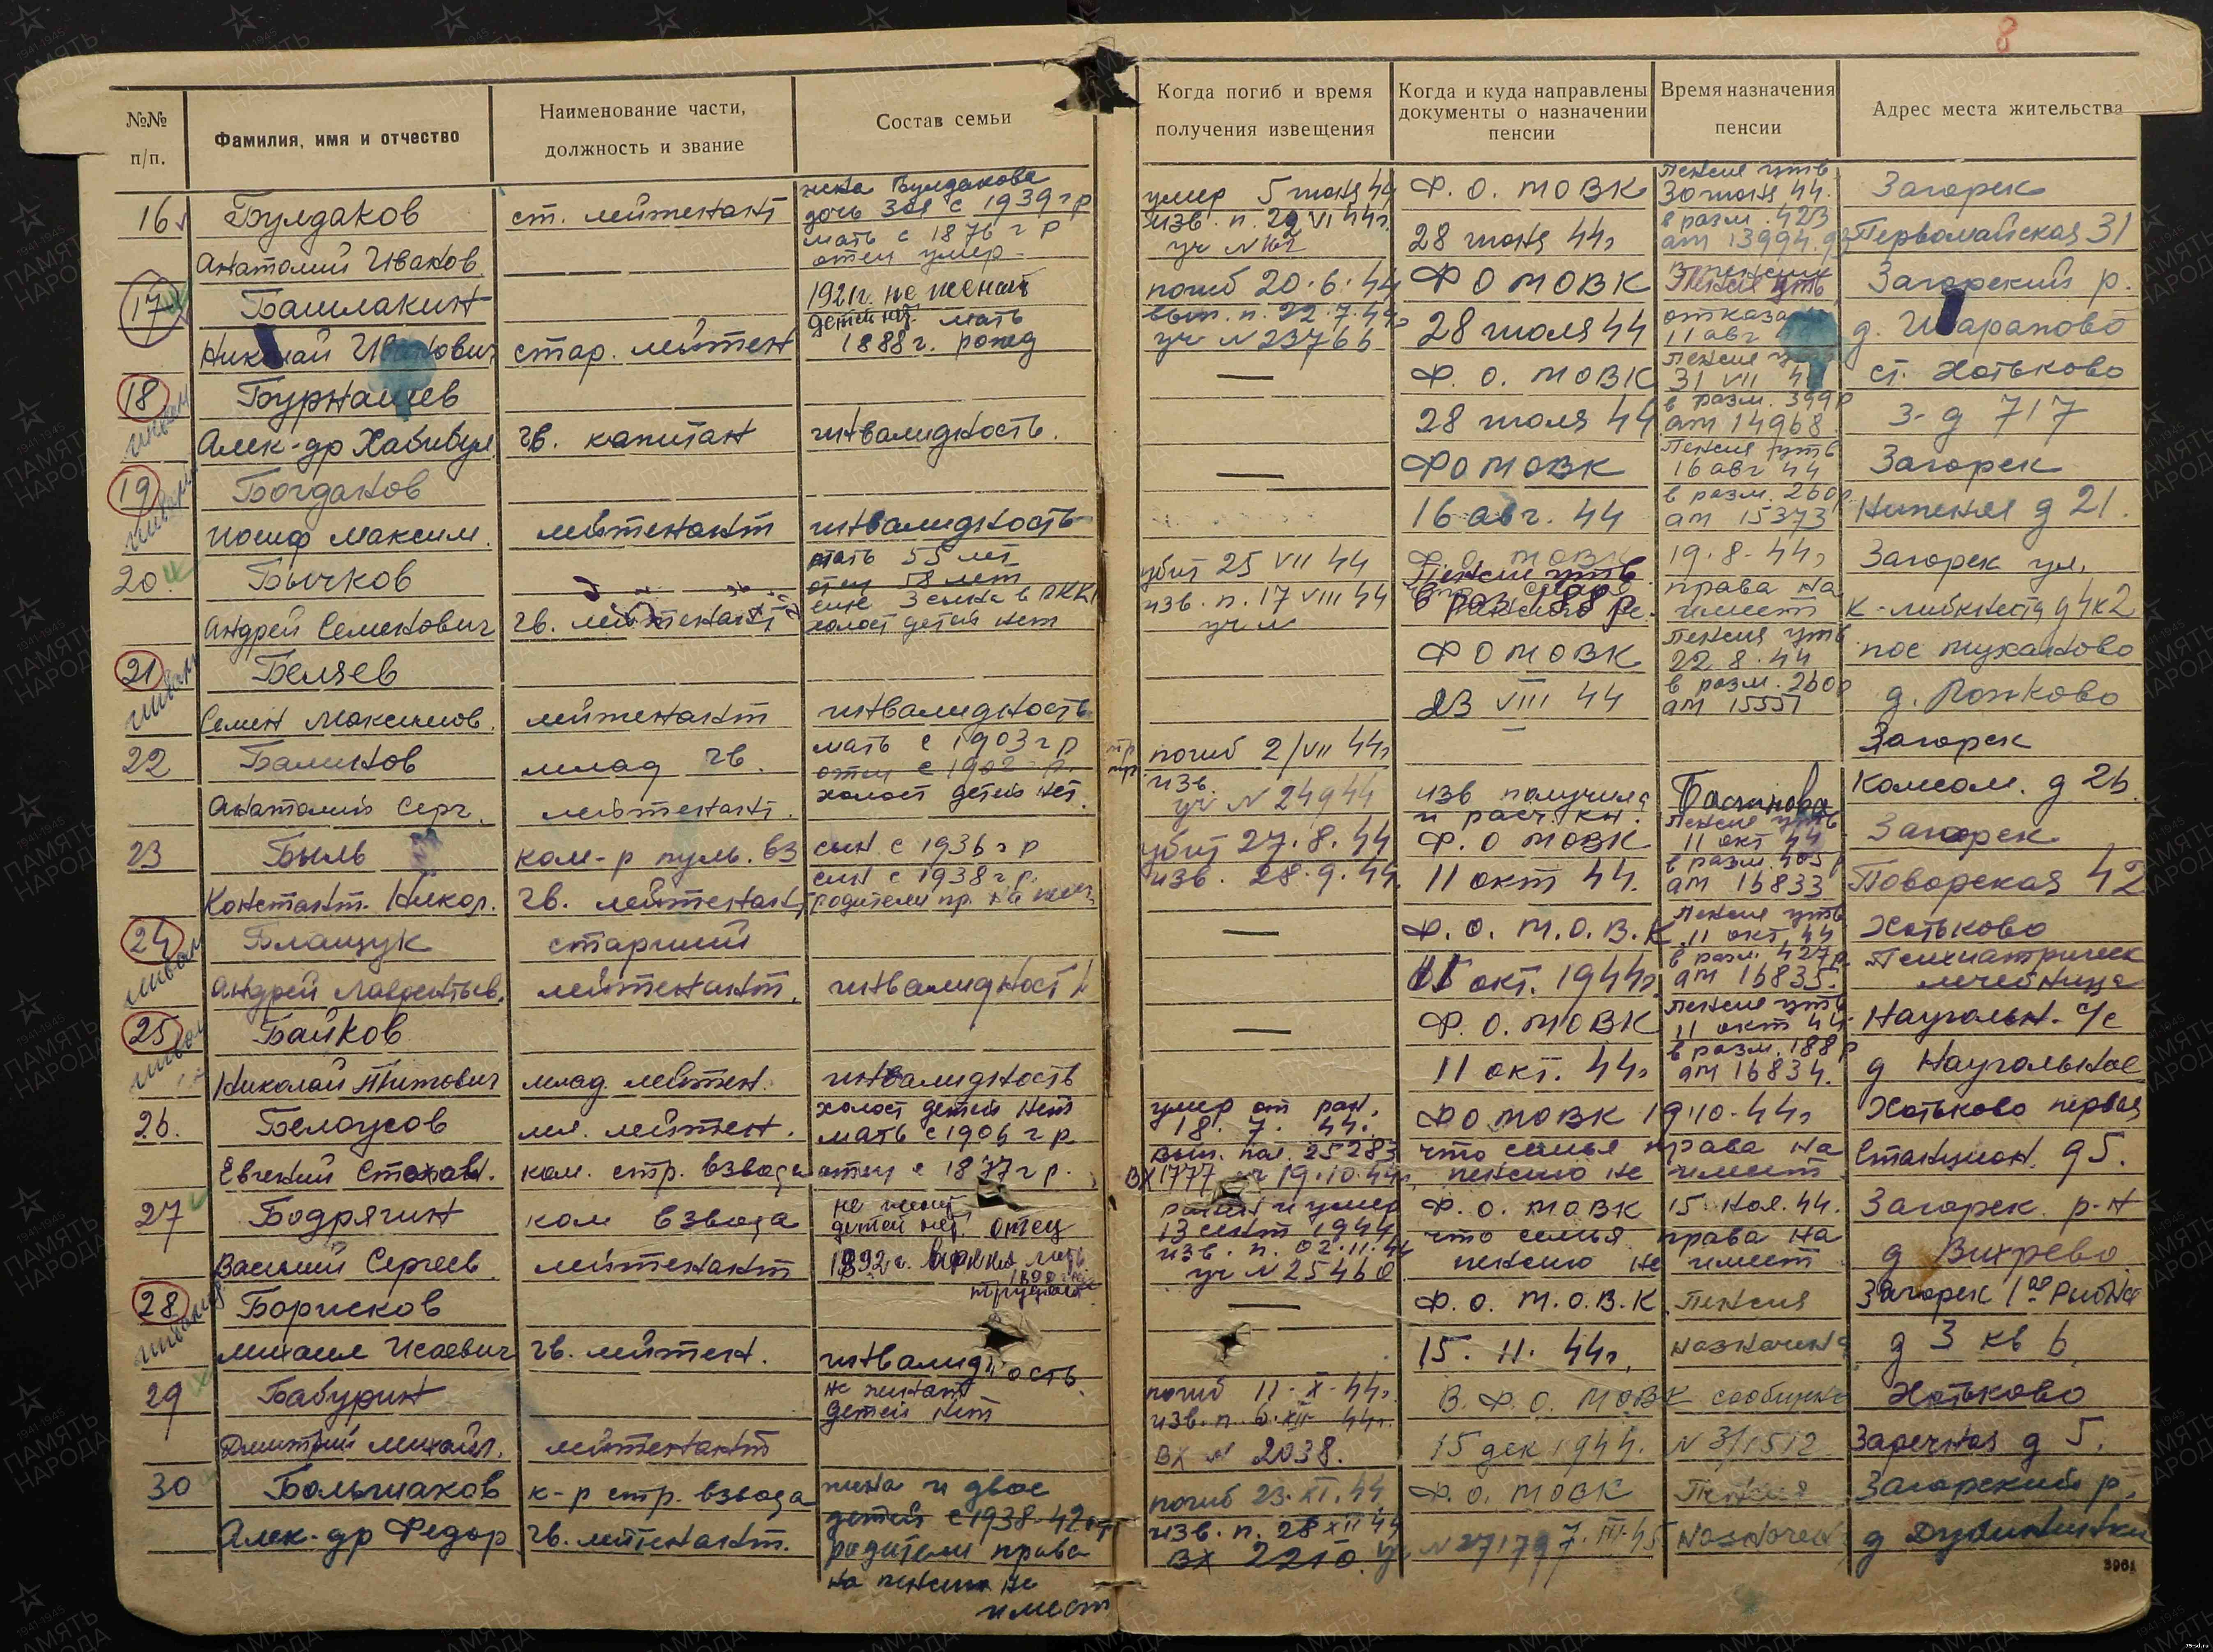 8
№№ п/п.
Фамилия, имя и отчество
Наименование части, должность и звание
Состав семьи
Когда погиб и время получения извещения
Когда и куда направлены документы о назначении пенсии
Время назначения пенсии
Адрес места жительства
16
Булдаков
Анатолий Иванов.
ст. лейтенант
жена Булдакова
дочь Зоя с 1939 г р
мать с 1876 г р
отец умер
умер 5 июня 44
изв. п. 29 VI 44г.
Ф. О. МОВК
28 июня 44г
Пенсия утв
30 июня 44.
в разм. 423
ат 13994
Загорек
Первомайская 31
17
Башлакин
Николай Иванович
стар. лейтен
1921г. не женат
детей нет. мать
1888г. рожд
погиб 20.6.44
п. 22.7.44г
уч N 23766
ФО МОВК
28 июля 44
Пенсия утв
отказа
11 авг
Загорский р.
д. Шарапово
18
инвал
Бурнашев
Алек-др Хабибул
гв. капитан
инвалидность.
—
Ф. О. МОВК
28 июля 44
Пенсия утв
31 VII 44
в разм. 399р
ат 14968
ст. Хотьково
з-д 717
19
инвал
Богданов
Иосиф Максим.
лейтенант
инвалидность
—
ФО МОВК
16 авг. 44
Пенсия утв
16 авг 44
в разм. 260р
ат 15373
Загорск
Нижняя д 21.
20.
Бычков
Андрей Семенович
гв. лейтенант
мать 55 лет
отец 58 лет
еще 3 сына в РККА
холост детей нет
убит 25 VII 44
изв. п. 17 VIII 44
уч N
Ф. О. МОВК
Пенсия утв.
в раз. 188 р
19.8.44г
права на
имеет
Загорск ул.
К-Либкнехта д 4 к 2
21
инвал
Беляев
Семен Максимов.
лейтенант
инвалидность
ФО МОВК
23 VIII 44
Пенсия утв
22 8.44
в разм. 260р
ат 15551
пос Муханово
д. Рожково
22
Балинов
Анатолий Серг.
млад гв.
лейтенант.
мать с 1903 г р
отец с 1902 г р.
холост детей нет.
погиб 2/VII 44г
изв.
уч N 24944
изв получила
и расч. кн.
Загорск
Комсом. д 26.
23
Быль
Констант. Никол.
ком-р пуль. вз
гв. лейтенант
сын с 1936 г р
сын с 1938 г р.
родители пр. на
убит 27.8.44
изв. 28.9.44.
Ф. О МОВК
11 окт 44.
Пенсия утв.
11 окт 44
в разм. 405 р
ат 16833
Загорск
Поворская 42
24
инвал
Блащук
Андрей Лаврентьев.
старший
лейтенант.
инвалидность
—
Ф. О. М. О. В. К
окт. 1944г.
Пенсия утв
11 окт. 44
в разм. 427р.
ат 16835.
Хотьково
Психиатрическ
лечебница
25
инвал
Байков
Николай Титович
млад. лейтен.
инвалидность
—
Ф. О. МОВК
11 окт. 44г
Пенсия утв
11 окт 44
в разм. 188 р
ат 16834.
Наугольн. с/с
д Наугольное
26.
Белоусов
Евгений Степан.
мл. лейтен.
ком. стр. взвода
холост детей нет
мать с 1906 г р
отец с 1877 г р.
умер от ран.
18. 7. 44.
25283
вх 1777 19.10.44г.
ФО МОВК 19.10.44г
что семья права на
пенсию не имеет
Хотьково первая
Станцион. д 5.
27
Бодрягин
Василий Сергеев.
ком взвода
лейтенант
не женат
детей нет. отец
1892г. мать
ранен и умер
13 сент 1944
изв. п. 02.11.44
уч N 25460
Ф. О. МОВК 15 ноя. 44.
что семья права на
пенсию не имеет
Загорск. р-н
д Вихрево.
28
Борисков
Михаил Исаевич
гв. лейтен.
инвалидность
—
Ф. О. М. О. В. К
15. 11. 44г.
Пенсия
назначена
Загорск 1ая Рыбная
д 3 кв 6
29
Бабурин
Дмитрий Михайл.
лейтенант
не женат
детей нет
погиб 11.X.44г
изв. п. 6.XII 44г.
вх N 2038.
В. Ф. О. МОВК сообщено
15 дек 1944. N 3/1512
Хотьково
Заречная д 5.
30
Большаков
Алек-др Федор
к-р стр. взвода
гв. лейтенант.
жена и двое
детей с 1938-42 гр
родители права
на пенсию не
имеют
погиб 23.XI.44
изв. п. 28 XII 44
вх 2210.
Ф. О. МОВК
Пенсия
назначен
Загорский р.
3961